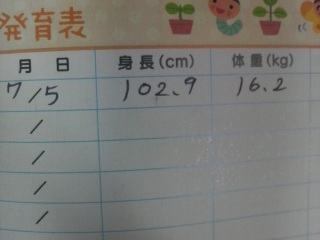 発育表
月 日 身長(cm) 体重(kg)
7/5 102.9 16.2
/
/
/
/